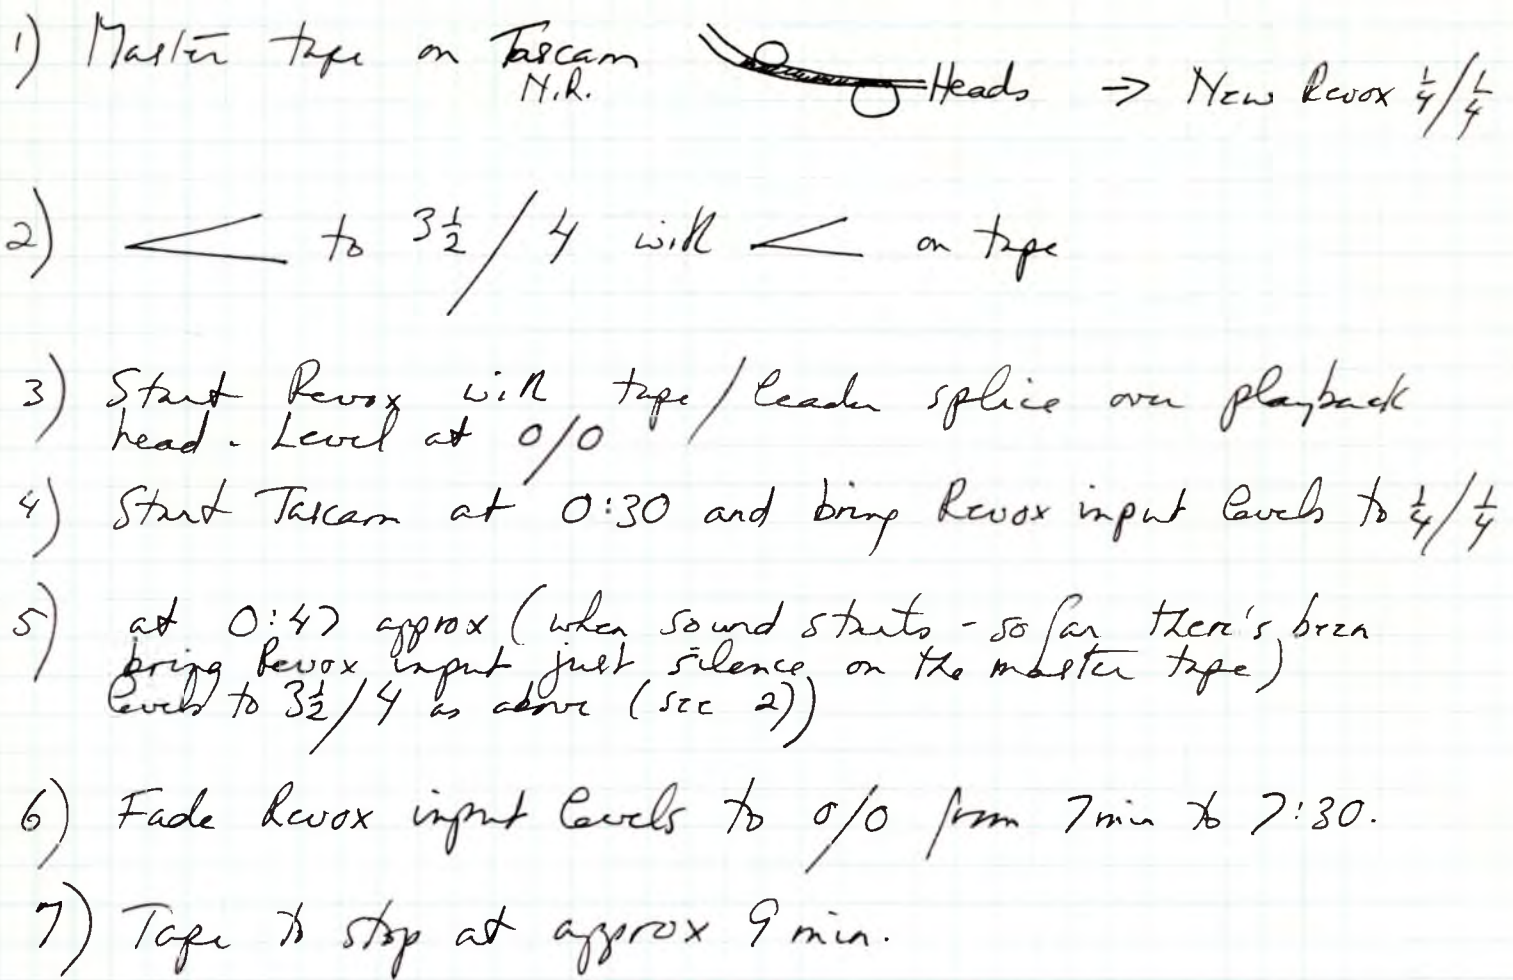 1) Master tape on Tascam Heads → New Revox 1/4 / 1/4
N.R.
2) < to 3 1/2 / 4 with < on tape
3) Start Revox with tape / leader splice over playback
head. Level at 0/0
4) Start Tascam at 0:30 and bring Revox input levels to 1/4 / 1/4
5) at 0:47 approx (when sound starts - so far there's been
bring Revox input just silence on the master tape)
levels to 3 1/2 / 4 as above (see 2))
6) Fade Revox input levels to 0/0 from 7 min to 7:30.
7) Tape to stop at approx 9 min.